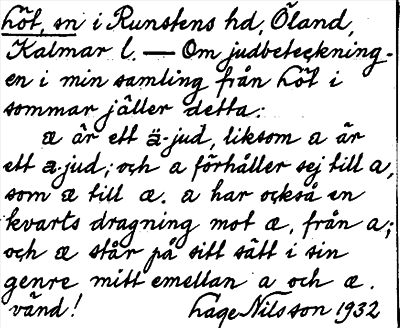 höt, sn i Runstens hd, Öland,
Kalmar l. — Om judbeteckning-
en i min samling från höt i
sommar jäller detta:
æ är ett ä-jud, liksom a är
ett a-jud; och a förhåller sej till a,
som æ till æ. a har också en
kvarts dragning mot æ, från a;
och æ står på sitt sätt i sin
genre mitt emellan a och æ.
vänd! Hage Nilsson 1932